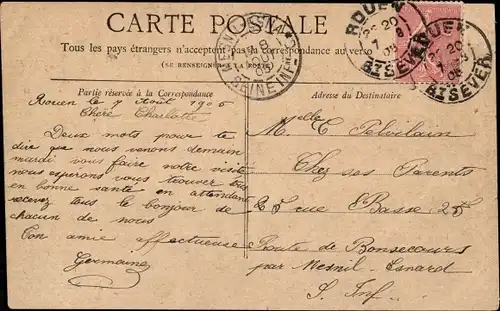 CARTE POSTALE
Tous les pays étrangers n'acceptent pas la correspondance au verso
(SE RENSEIGNER A LA POSTE)
ROUEN
Bt SEVER
ROUEN
Bt SEVER
Partie réservée à la Correspondance
Adresse du Destinataire
Rouen le 7 Août 1905
Chère Charlotte
Deux mots pour te
dire que nous venons demain
mardi vous faire notre visite
nous espérons vous trouver tous
en bonne santé en attendant
recevez tous le bonjour de
chacun de nous
Ton amie affectueuse
Germaine
Melle C
Chez ses Parents
25 rue Basse 25
Route de Bonsecours
par Mesnil-Esnard
S. Inf